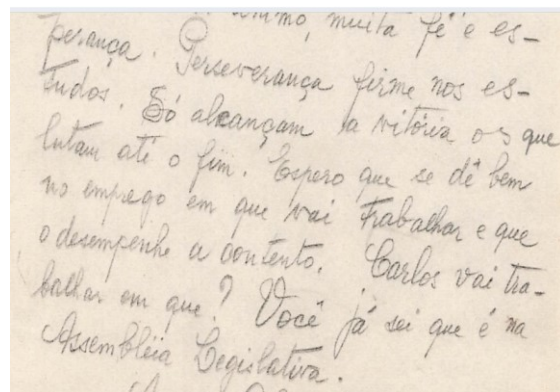 ânimo, muita fé e es-
perança. Perseverança firme nos es-
tudos. Só alcançam a vitória os que
lutam até o fim. Espero que se dê bem
no emprego em que vai trabalhar e que
o desempenhe a contento. Carlos vai tra-
balhar em que? Você já sei que é na
Assembléia Legislativa.